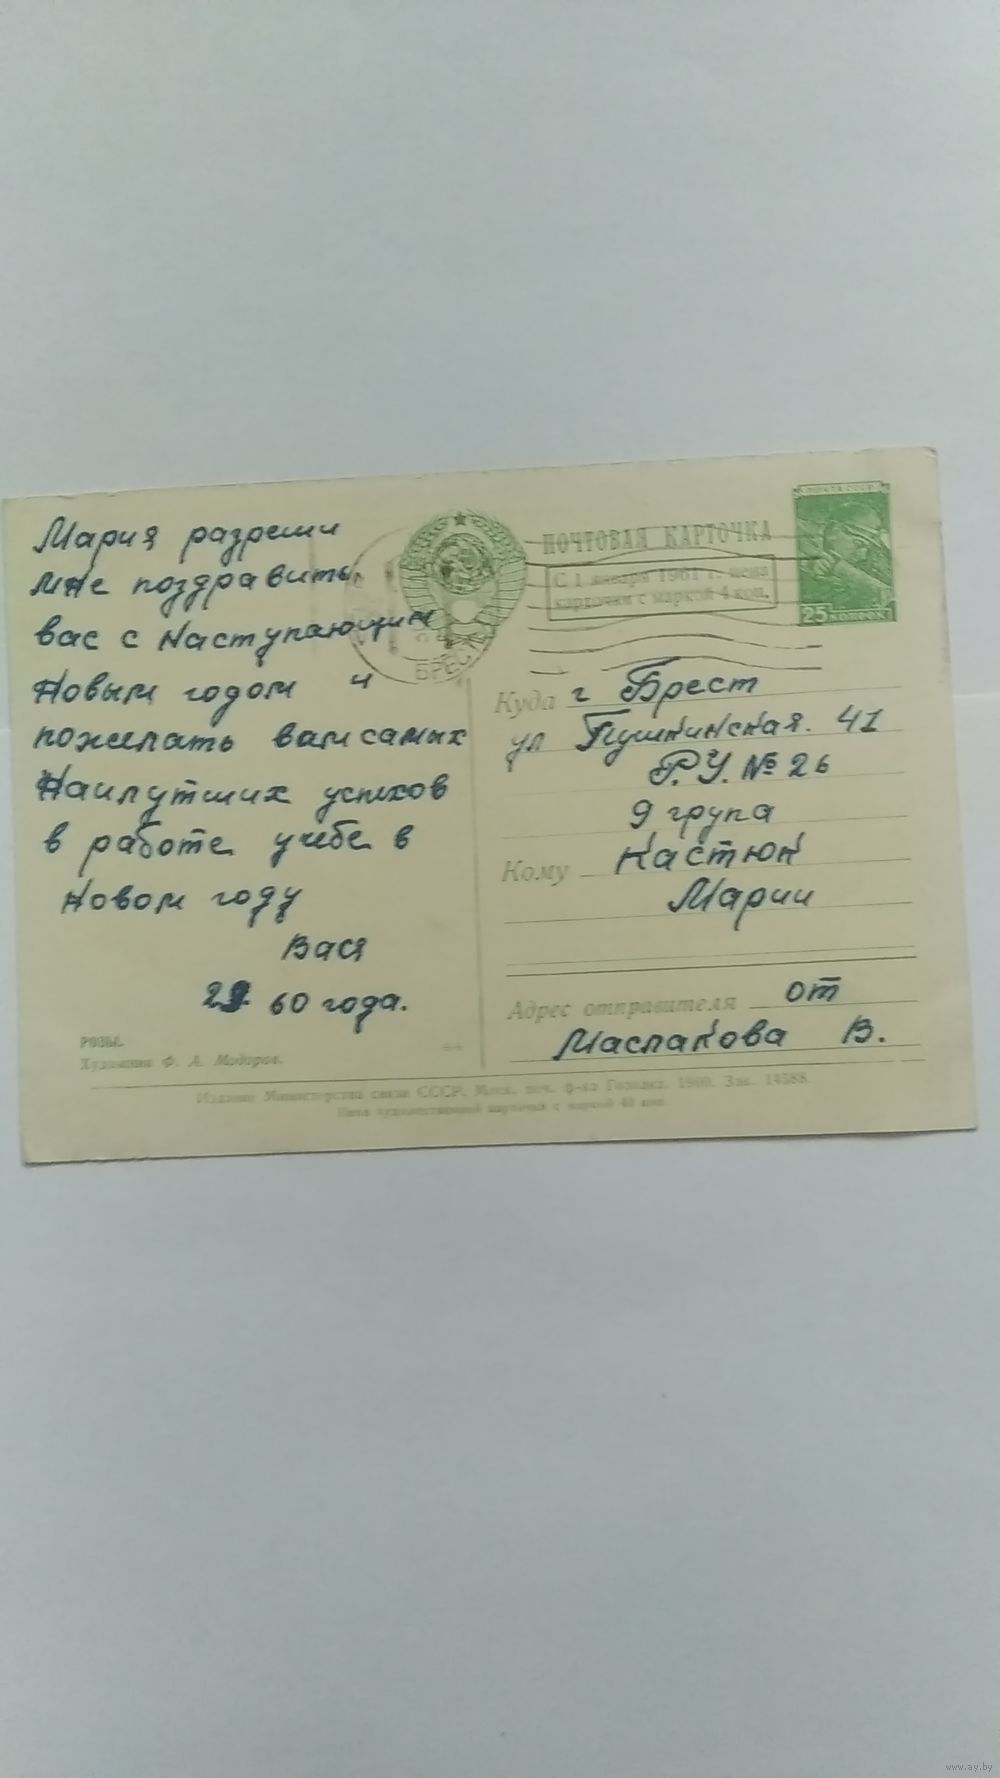 Мария разреши
мне поздравить
вас с Наступающим
Новым годом и
пожелать вам самых
Наилутших успехов
в работе учебе в
Новом году
Вася
29 60 года.
РОЗЫ.
Художник Ф. А. Модоров.
БРЕСТ
ПОЧТОВАЯ КАРТОЧКА
С 1 января 1961 г. цена
карточки с маркой 4 коп.
ПОЧТА СССР
25 КОПЕЕК
Куда г Брест
ул Пушкинская. 41
Р.У. № 26
9 група
Кому Кастюк
Марии
Адрес отправителя от
Маслакова В.
Издание Министерства связи СССР. Моск. печ. ф-ка Гознака. 1960. Зак. 14588.
Цена художественной карточки с маркой 40 коп.
www.ay.by